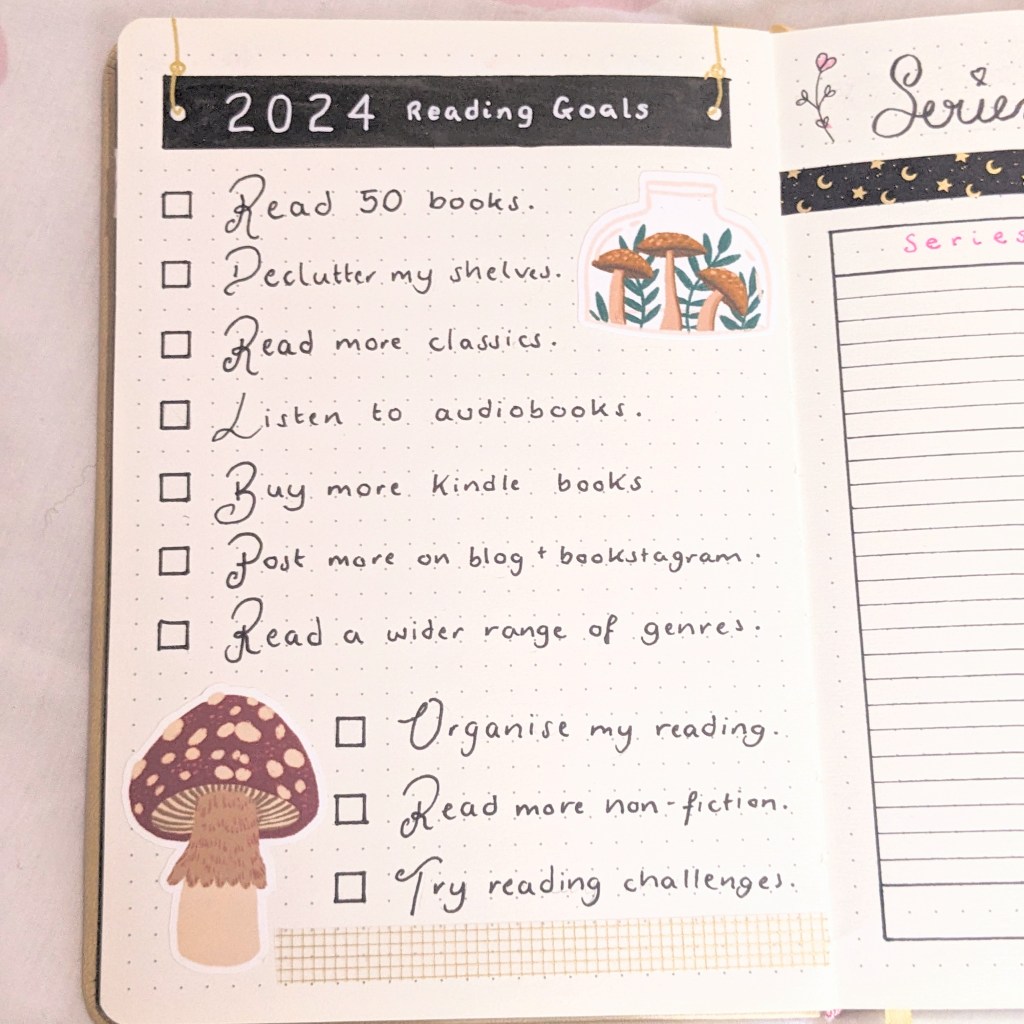 2024 Reading Goals
Read 50 books.
Declutter my shelves.
Read more classics.
Listen to audiobooks.
Buy more Kindle books
Post more on blog + bookstagram.
Read a wider range of genres.
Organise my reading.
Read more non-fiction.
Try reading challenges.
Series
Series